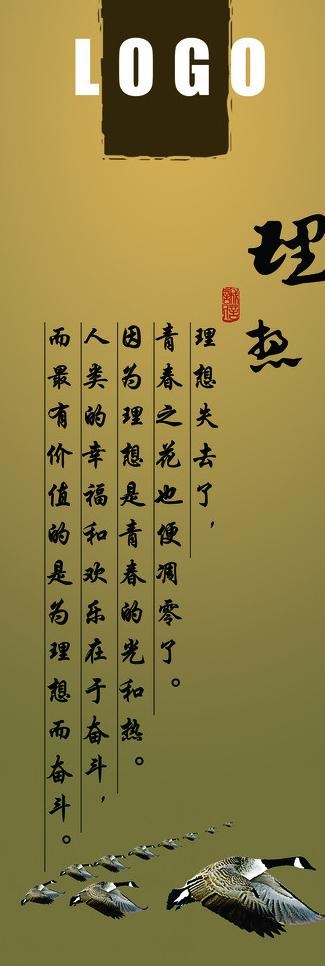 LOGO
理
热
理想失去了，
青春之花也便凋零了。
因为理想是青春的光和热。
人类的幸福和欢乐在于奋斗，
而最有价值的是为理想而奋斗。